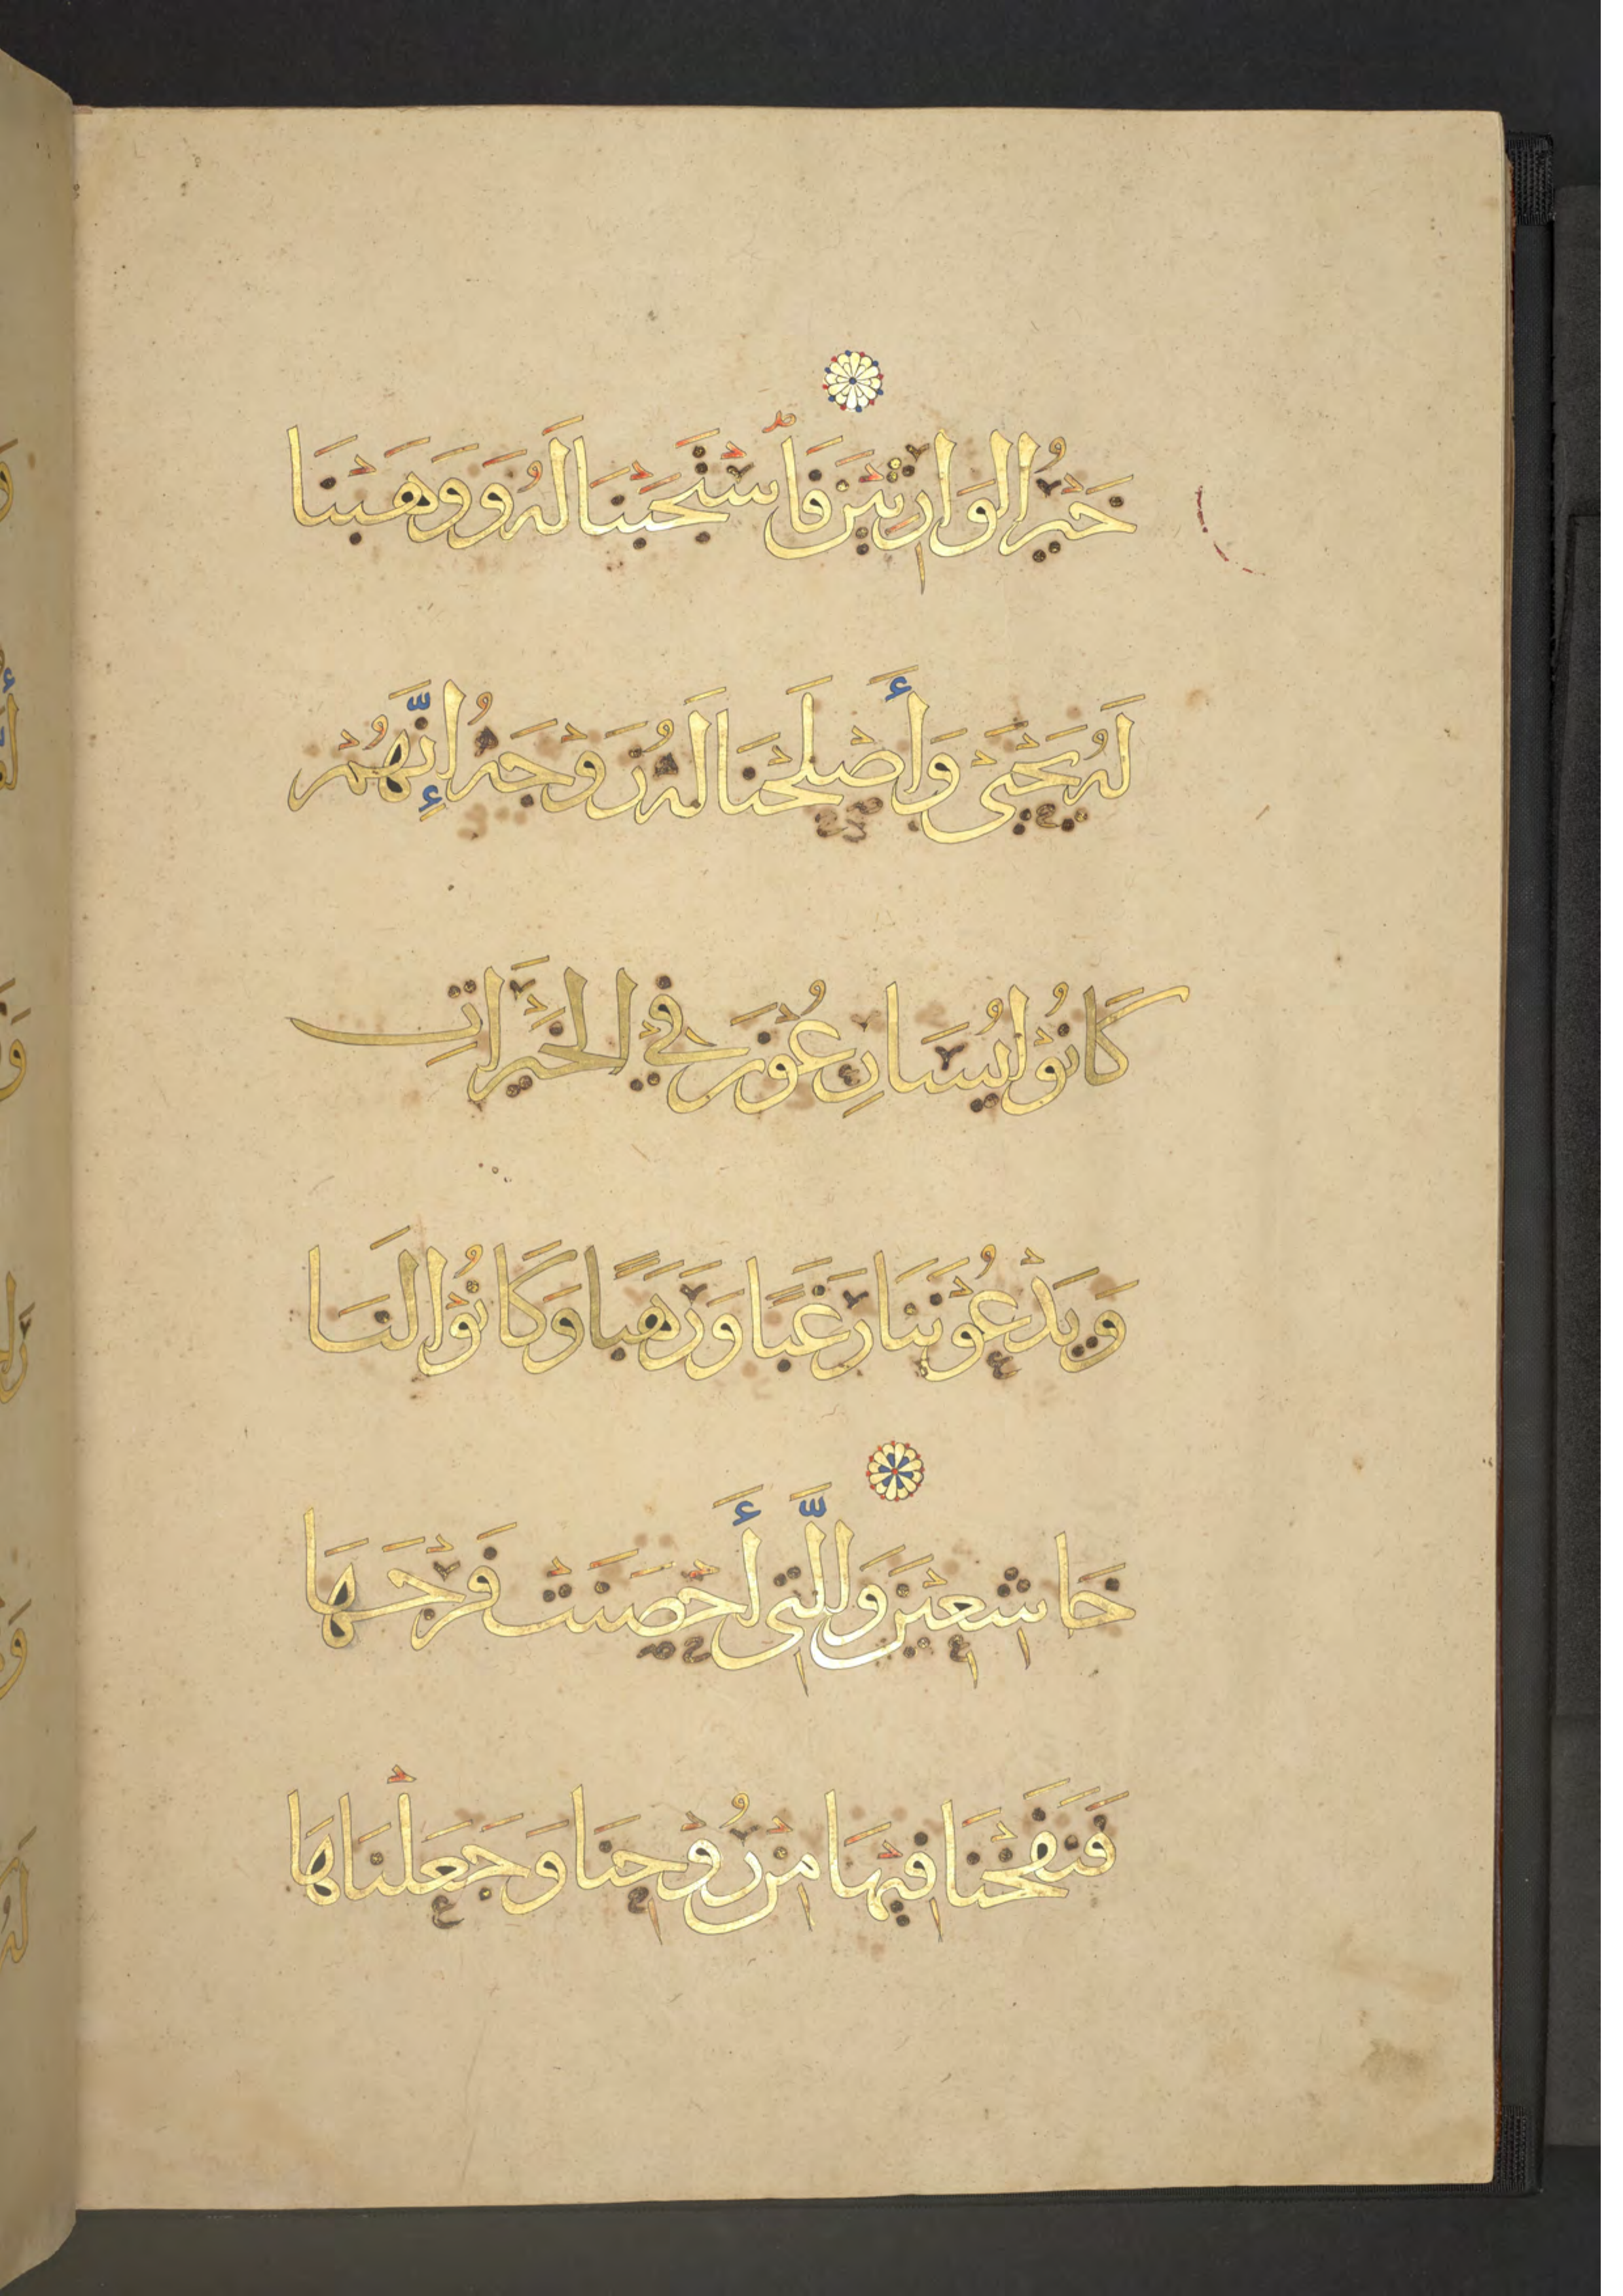 خَيْرُ الوَارِثِيْنَ فَاسْتَجَبْنَا لَهُ وَوَهَبْنَا
لَهُ يَحْيَى وَأَصْلَحْنَا لَهُ زَوْجَهُ إِنَّهُمْ
كَانُوْا يُسَارِعُوْنَ فِي الخَيْرَاتِ
وَيَدْعُوْنَنَا رَغَبًا وَرَهَبًا وَكَانُوْا لَنَا
خَاشِعِيْنَ وَالَّتِي أَحْصَنَتْ فَرْجَهَا
فَنَفَخْنَا فِيْهَا مِنْ رُوْحِنَا وَجَعَلْنَاهَا